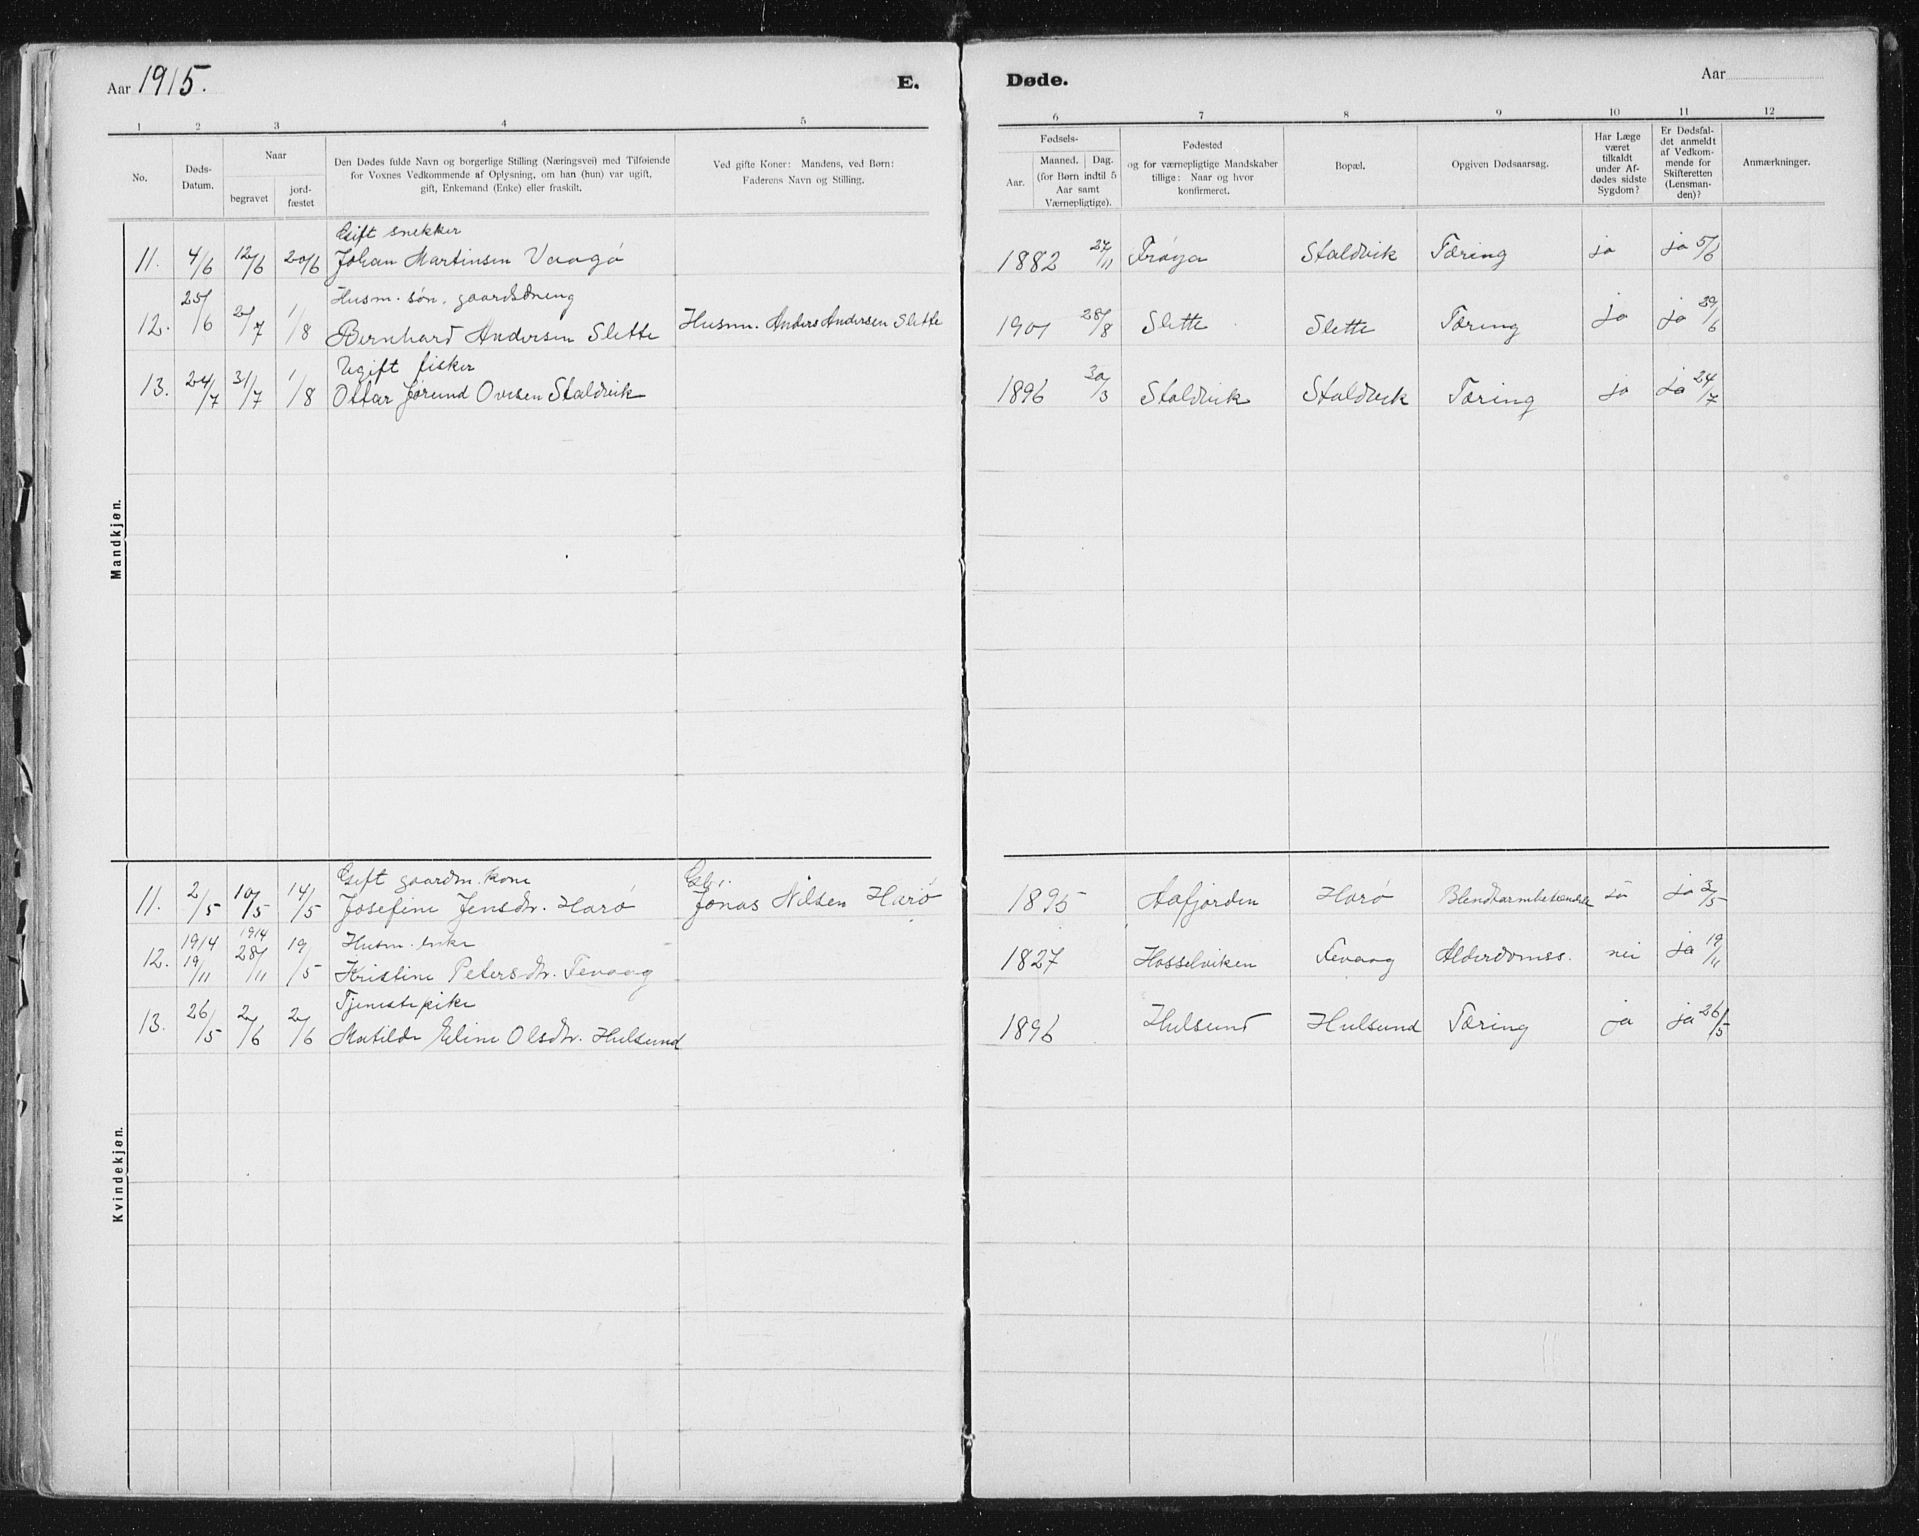 Aar 1915. E. Døde. Aar
1 2 3 4 5 6 7 8 9 10 11 12
No.
Døds-
Datum.
Naar
begravet
jord-
fæstet
Den Dødes fulde Navn og borgerlige Stilling (Næringsvei) med Tilføiende
for Voxnes Vedkommende af Oplysning, om han (hun) var ugift,
gift, Enkemand (Enke) eller fraskilt.
Ved gifte Koner: Mandens, ved Børn:
Faderens Navn og Stilling.
Fødsels-
Aar.
Maaned. Dag.
(for Børn indtil 5
Aar samt
Værnepligtige).
Fødested
og for værnepligtige Mandskaber
tillige: Naar og hvor
konfirmeret.
Bopæl.
Opgiven Dødsaarsag.
Har Læge
været
tilkaldt
under Af-
dødes sidste
Sygdom?
Er Dødsfal-
det anmeldt
af Vedkom-
mende for
Skifteretten
(Lensman-
den)?
Anmærkninger.
Mandkjøn.
Gift snekker
11. 4/6 12/6 20/6 Johan Martinsen Vaagø 1882 27/11 Frøya Staldvik Tæring ja ja 5/6
Husm. søn, gaardsdreng
12. 25/6 2/7 1/8 Bernhard Andersen Slette Husm. Anders Andersen Slette 1901 28/8 Slette Slette Tæring ja ja 29/6
Ugift fisker
13. 24/7 31/7 1/8 Ottar Jørund Ovesen Staldvik 1896 30/3 Staldvik Staldvik Tæring ja ja 24/7
Kvindekjøn.
Gift gaardm. kone Gbr.
11. 2/5 10/5 14/5 Josefine Jensdtr. Harø Jonas Nilsen Harø 1895 Aafjorden Harø Blendtarmbetændelse ja ja 3/5
1914 1914 Husm. enke
12. 19/11 28/11 19/5 Kristine Petersdtr. Tevaag 1827 Hasselviken Tevaag Alderdomss. nei ja 19/11
Tjenestepike
13. 26/5 2/6 2/6 Matilde Eline Olsdtr. Hulsund 1896 Hulsund Hulsund Tæring ja ja 26/5